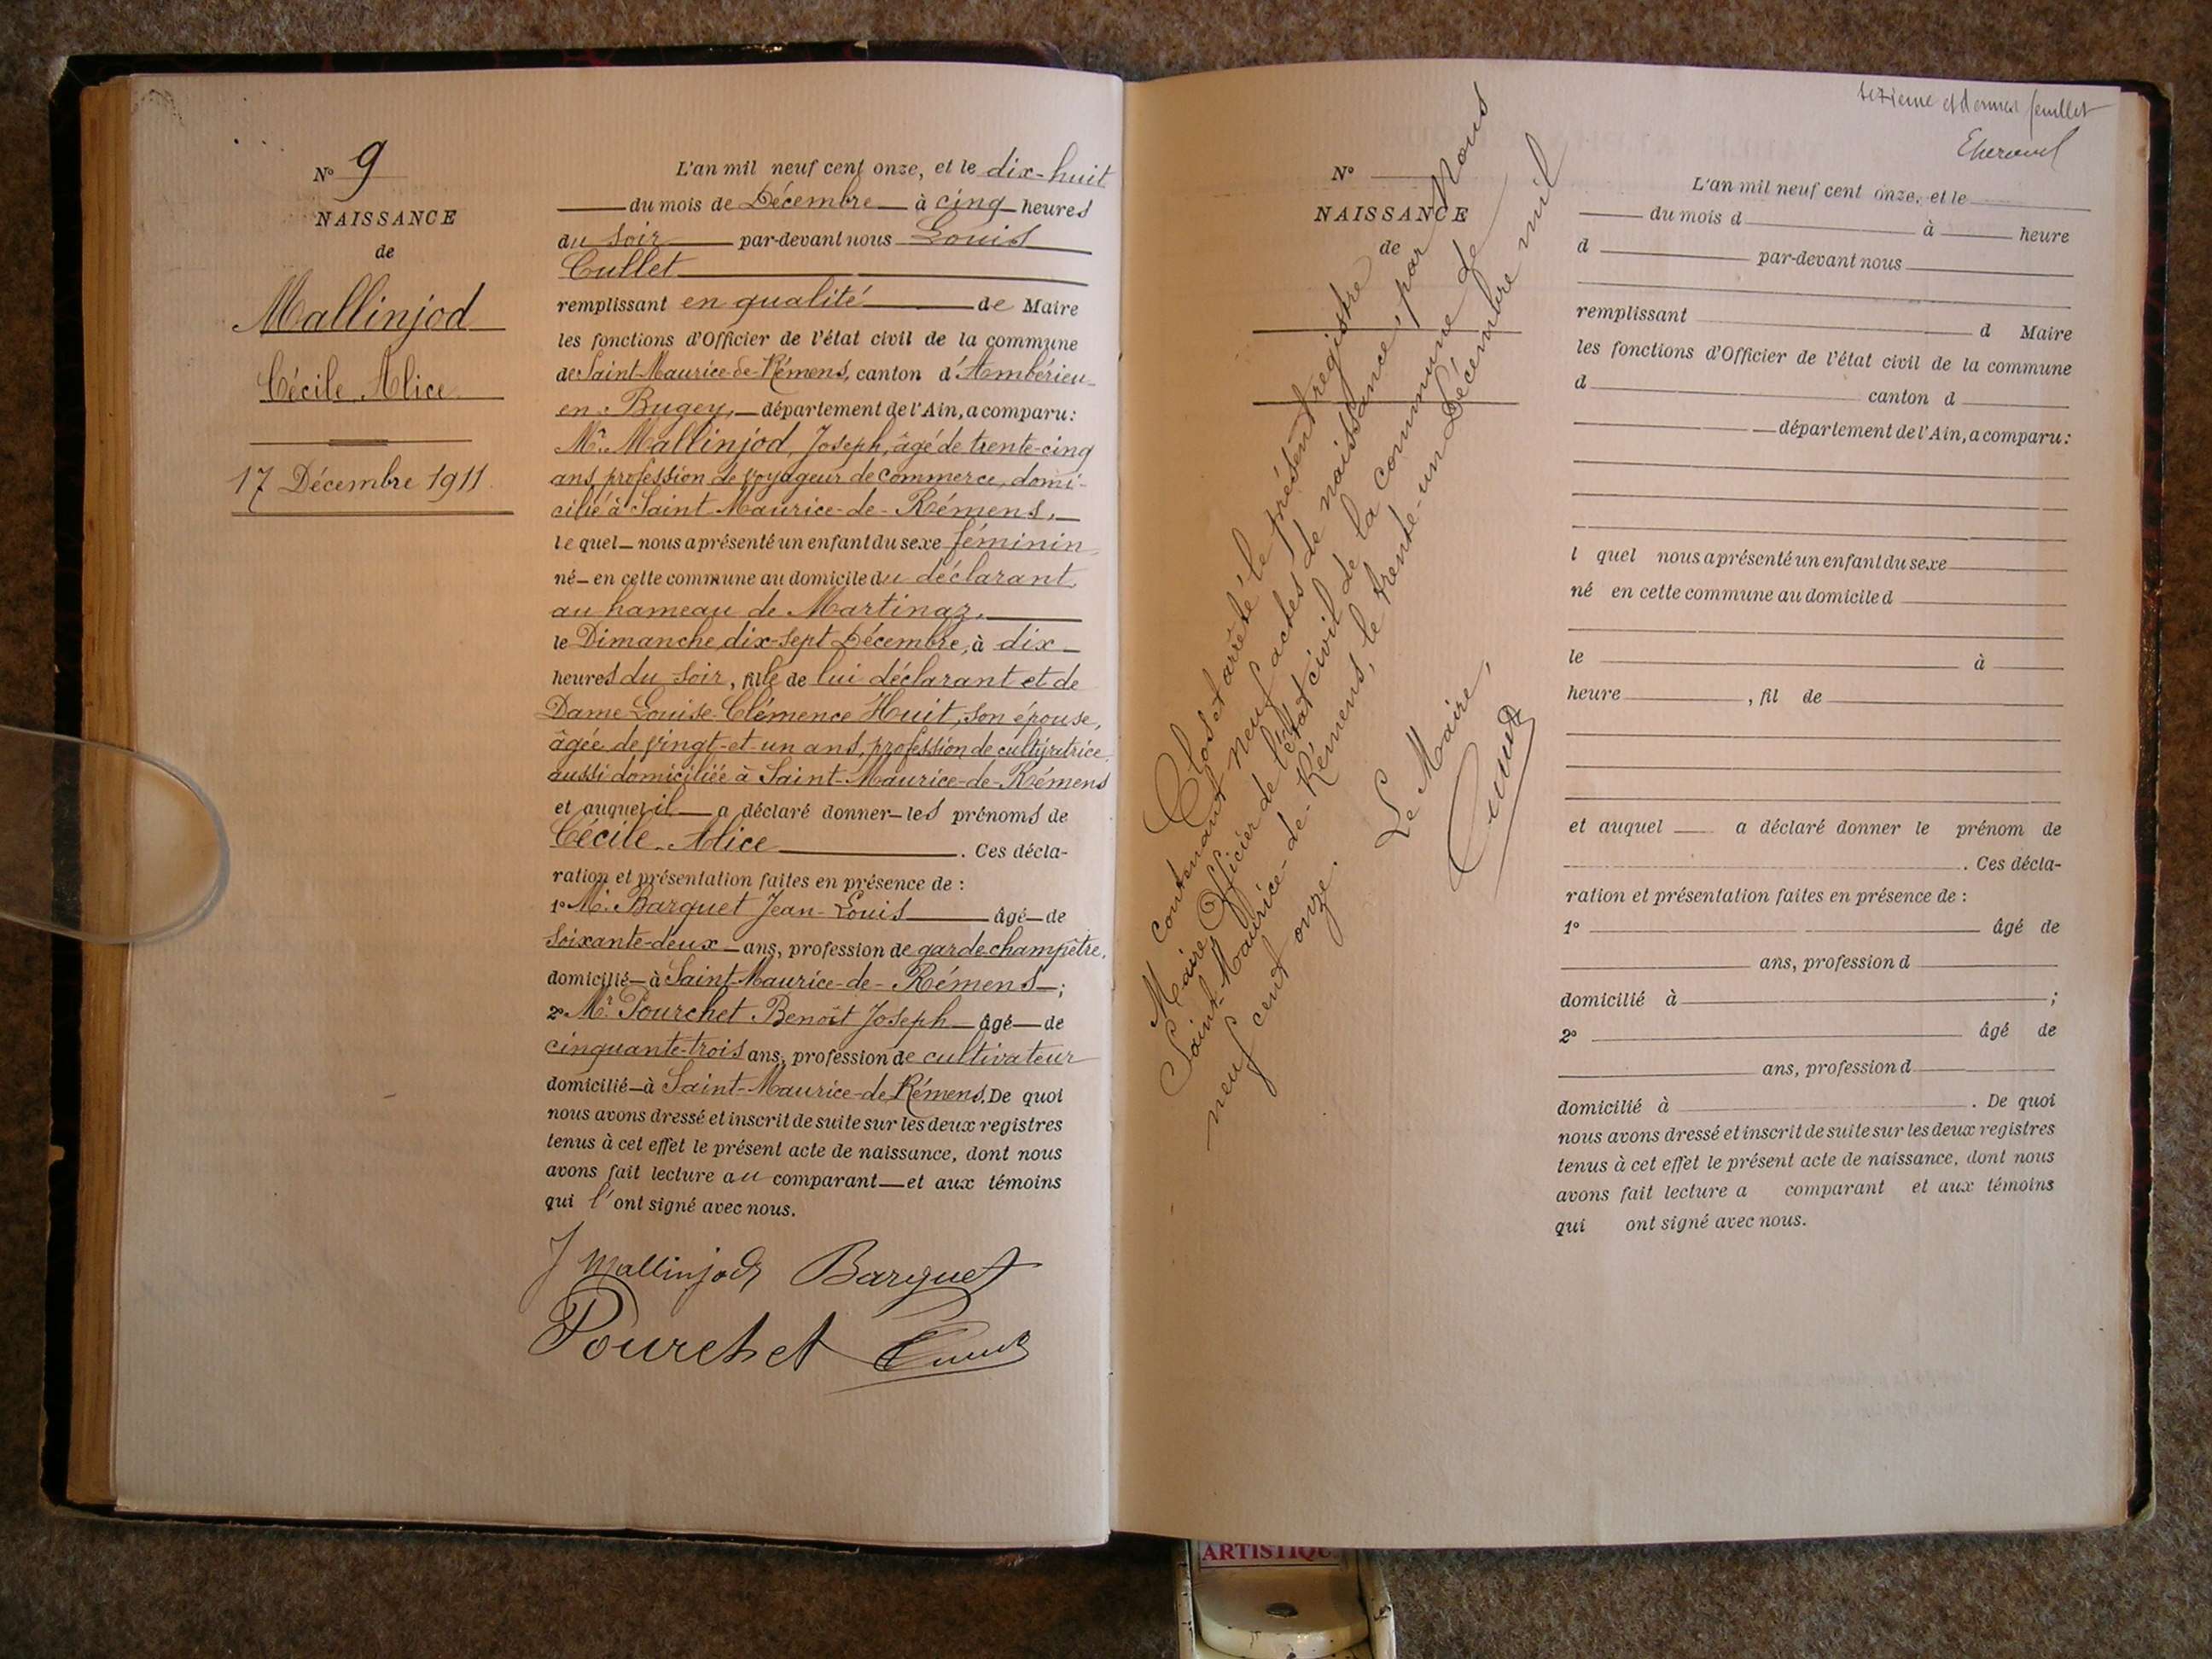 N° 9
NAISSANCE
de
Mallinjod
Cécile Alice
17 Décembre 1911
L'an mil neuf cent onze, et le dix-huit
du mois de Décembre à cinq heures
du soir par-devant nous Louis
Cullet
remplissant en qualité de Maire
les fonctions d'Officier de l'état civil de la commune
de Saint-Maurice-de-Rémens, canton d'Ambérieu-
en-Bugey, département de l'Ain, a comparu:
Mr. Mallinjod, Joseph, âgé de trente-cinq
ans, profession de voyageur de commerce, domi-
cilié à Saint-Maurice-de-Rémens,
lequel nous a présenté un enfant du sexe féminin
né en cette commune au domicile du déclarant,
au hameau de Martinaz,
le Dimanche dix-sept Décembre, à dix
heures du soir, fille de lui déclarant et de
Dame Louise Clémence Huit, son épouse,
âgée de vingt-et-un ans, profession de cultivatrice,
aussi domiciliée à Saint-Maurice-de-Rémens
et auquel il a déclaré donner les prénoms de
Cécile Alice. Ces décla-
ration et présentation faites en présence de :
1° M. Barquet Jean-Louis âgé de
soixante-deux ans, profession de garde champêtre,
domicilié à Saint-Maurice-de-Rémens ;
2° Mr. Pourchet Benoît Joseph âgé de
cinquante-trois ans, profession de cultivateur
domicilié à Saint-Maurice-de-Rémens. De quoi
nous avons dressé et inscrit de suite sur les deux registres
tenus à cet effet le présent acte de naissance, dont nous
avons fait lecture au comparant et aux témoins
qui l'ont signé avec nous.
J Mallinjod Barquet
Pourchet
et dernier feuillet
N°
NAISSANCE
de
Clos et arrêté le présent registre
contenant neuf actes de naissance, par Nous
Maire Officier de l'état civil de la commune de
Saint-Maurice-de-Rémens, le trente-un Décembre mil
neuf cent onze.
Le Maire,
L'an mil neuf cent onze, et le
du mois d à heure
d par-devant nous
remplissant d Maire
les fonctions d'Officier de l'état civil de la commune
d canton d
département de l'Ain, a comparu:
l quel nous a présenté un enfant du sexe
né en cette commune au domicile d
le à
heure , fil de
et auquel a déclaré donner le prénom de
. Ces décla-
ration et présentation faites en présence de :
1° âgé de
ans, profession d
domicilié à ;
2° âgé de
ans, profession d
domicilié à . De quoi
nous avons dressé et inscrit de suite sur les deux registres
tenus à cet effet le présent acte de naissance, dont nous
avons fait lecture a comparant et aux témoins
qui ont signé avec nous.